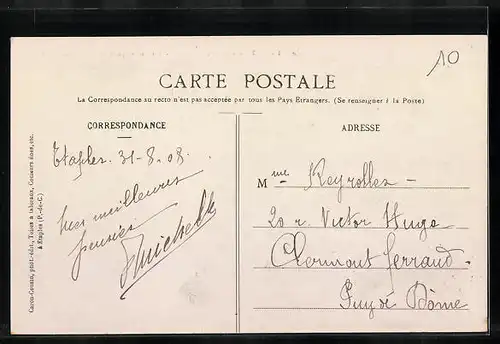 10
CARTE POSTALE
La Correspondance au recto n'est pas acceptée par tous les Pays Etrangers. (Se renseigner à la Poste)
CORRESPONDANCE
ADRESSE
Etaples. 31-8-08.
Mes meilleures
pensées
Michelle
Mme Keyrolles -
20 r. Victor Hugo
Clermont Ferrand
Puy de Dôme
à Etaples (P.-de-C.)